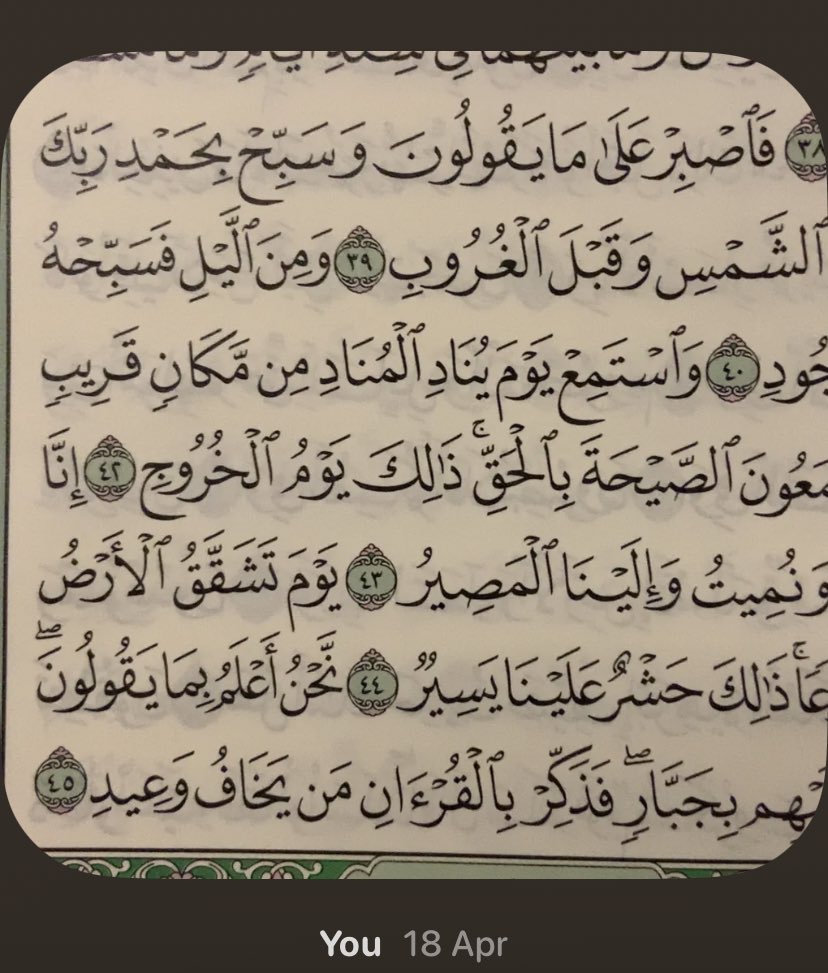 ٣٨ فَٱصْبِرْ عَلَىٰ مَا يَقُولُونَ وَسَبِّحْ بِحَمْدِ رَبِّكَ
ٱلشَّمْسِ وَقَبْلَ ٱلْغُرُوبِ ٣٩ وَمِنَ ٱلَّيْلِ فَسَبِّحْهُ
جُودِ ٤٠ وَٱسْتَمِعْ يَوْمَ يُنَادِ ٱلْمُنَادِ مِن مَّكَانٍ قَرِيبٍ
مَعُونَ ٱلصَّيْحَةَ بِٱلْحَقِّ ۚ ذَٰلِكَ يَوْمُ ٱلْخُرُوجِ ٤٢ إِنَّا
وَنُمِيتُ وَإِلَيْنَا ٱلْمَصِيرُ ٤٣ يَوْمَ تَشَقَّقُ ٱلْأَرْضُ
عًا ۚ ذَٰلِكَ حَشْرٌ عَلَيْنَا يَسِيرٌ ٤٤ نَّحْنُ أَعْلَمُ بِمَا يَقُولُونَ ۖ
يْهِم بِجَبَّارٍ ۖ فَذَكِّرْ بِٱلْقُرْءَانِ مَن يَخَافُ وَعِيدِ ٤٥
You 18 Apr